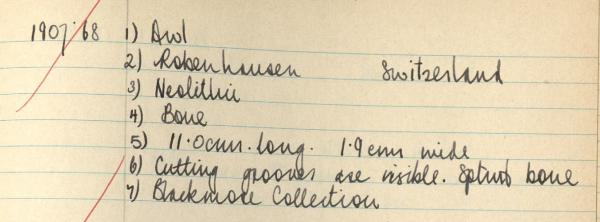 1907.68 1) Awl
2) Robenhausen Switzerland
3) Neolithic
4) Bone
5) 11.0cms. long. 1.9cms wide
6) Cutting grooves are visible. Splint bone
7) Blackmore Collection